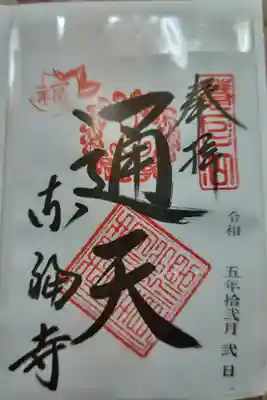 奉拝
令和 五年拾弐月 弐日
通天
東福寺